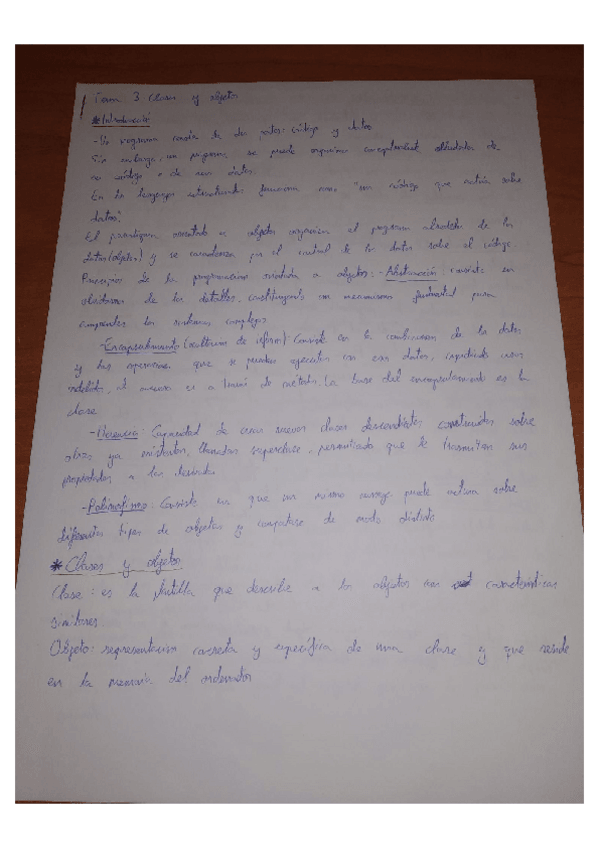 Tema 3: Clases y objetos
*Introducción
-Un programa consta de dos partes: código y datos
Sin embargo, un programa se puede organizar conceptualmente alrededor de
su código o de sus datos.
En los lenguajes estructurados funciona como "un código que actúa sobre
datos".
El paradigma orientado a objetos organiza el programa alrededor de los
datos (objetos) y se caracteriza por el control de los datos sobre el código.
Principios de la programación orientada a objetos: -Abstracción: consiste en
de los detalles, constituyendo un mecanismo fundamental para
comprender los sistemas complejos
-Encapsulamiento ( de ) Consiste en la combinación de los datos
y las operaciones que se pueden ejecutar con esos datos, impidiendo usos
indebidos, el acceso es a través de métodos. La base del encapsulamiento es la
clase
-Herencia: Capacidad de crear nuevas clases descendientes construidas sobre
otras ya existentes, llamadas superclase, permitiendo que le transmitan sus
propiedades a las
-Polimorfismo: Consiste en que un mismo mensaje puede actuar sobre
diferentes tipos de objetos y comportarse de modo distinto
*Clases y objetos
Clase: es la plantilla que describe a los objetos con características
similares.
Objeto: representación concreta y específica de una clase y que reside
en la memoria del ordenador